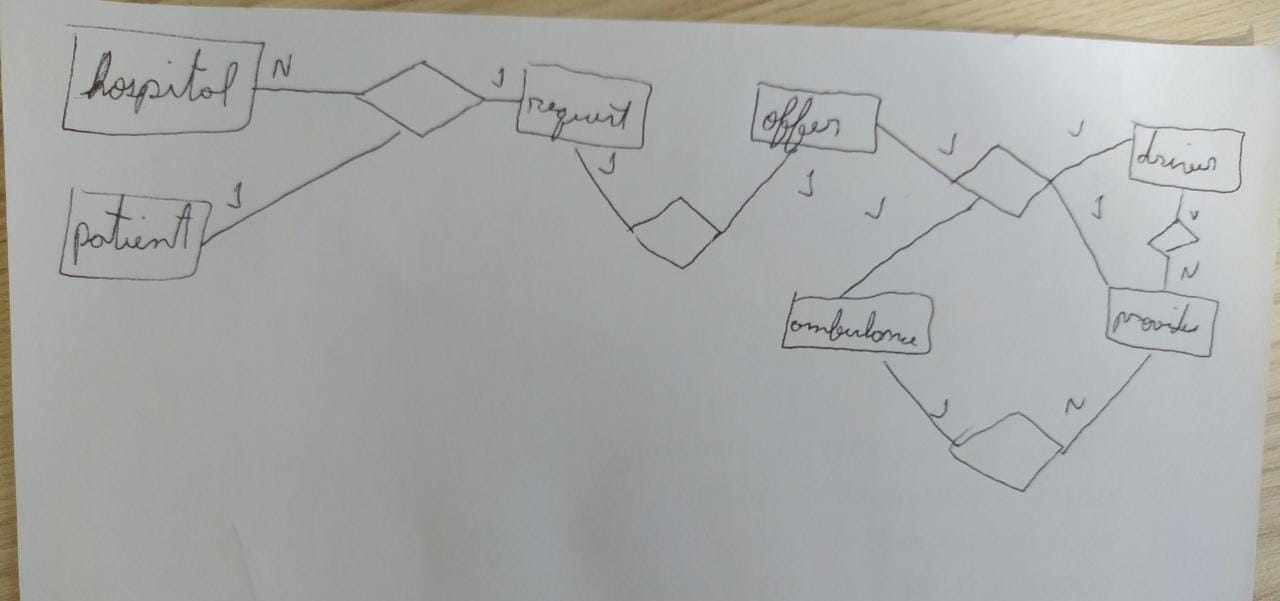 hospital
N
1
request
patient
1
1
offer
1
1
1
driver
1
1
N
ambulance
provider
1
N